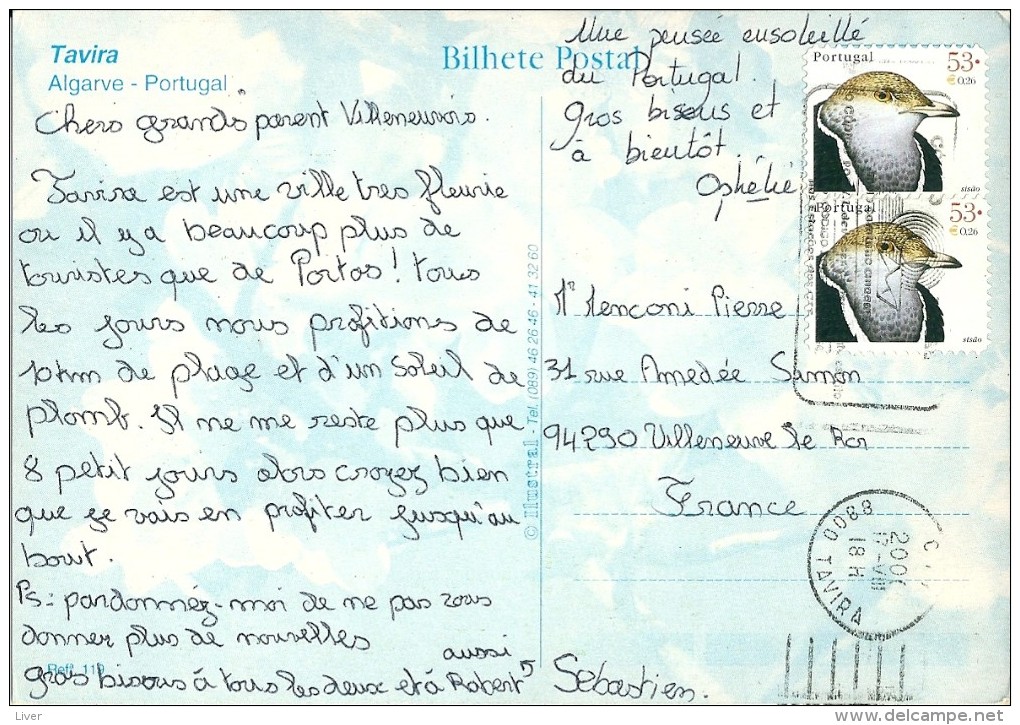 Tavira
Algarve - Portugal
Bilhete Postal
Une pensée ensoleillé
du Portugal.
gros bisous et
à bientôt.
Ophélie
Chers grands parent Villeneuvois.
Tavira est une ville tres fleurie
ou il y a beaucoup plus de
touristes que de Portos! tous
les jours nous profitions de
10km de plage et d'un soleil de
plomb. Il me me reste plus que
8 petit jours alors croyez bien
que je vais en profiter jusqu'au
bout.
Ps: pardonnez-moi de ne pas vous
donner plus de nouvelles
aussi
gros bisous à tous les deux et à Robert
Sébastien.
Refª 119
© ilustral - Tel. (089) 46 26 46 - 41 32 60
Portugal 53
0,26
sisão
Portugal 53
0,26
sisão
Mr Menconi Pierre
31 rue Amedée Simon
94290 Villeneuve le Roi
France
8800 TAVIRA
18H
Liver
www.delcampe.net